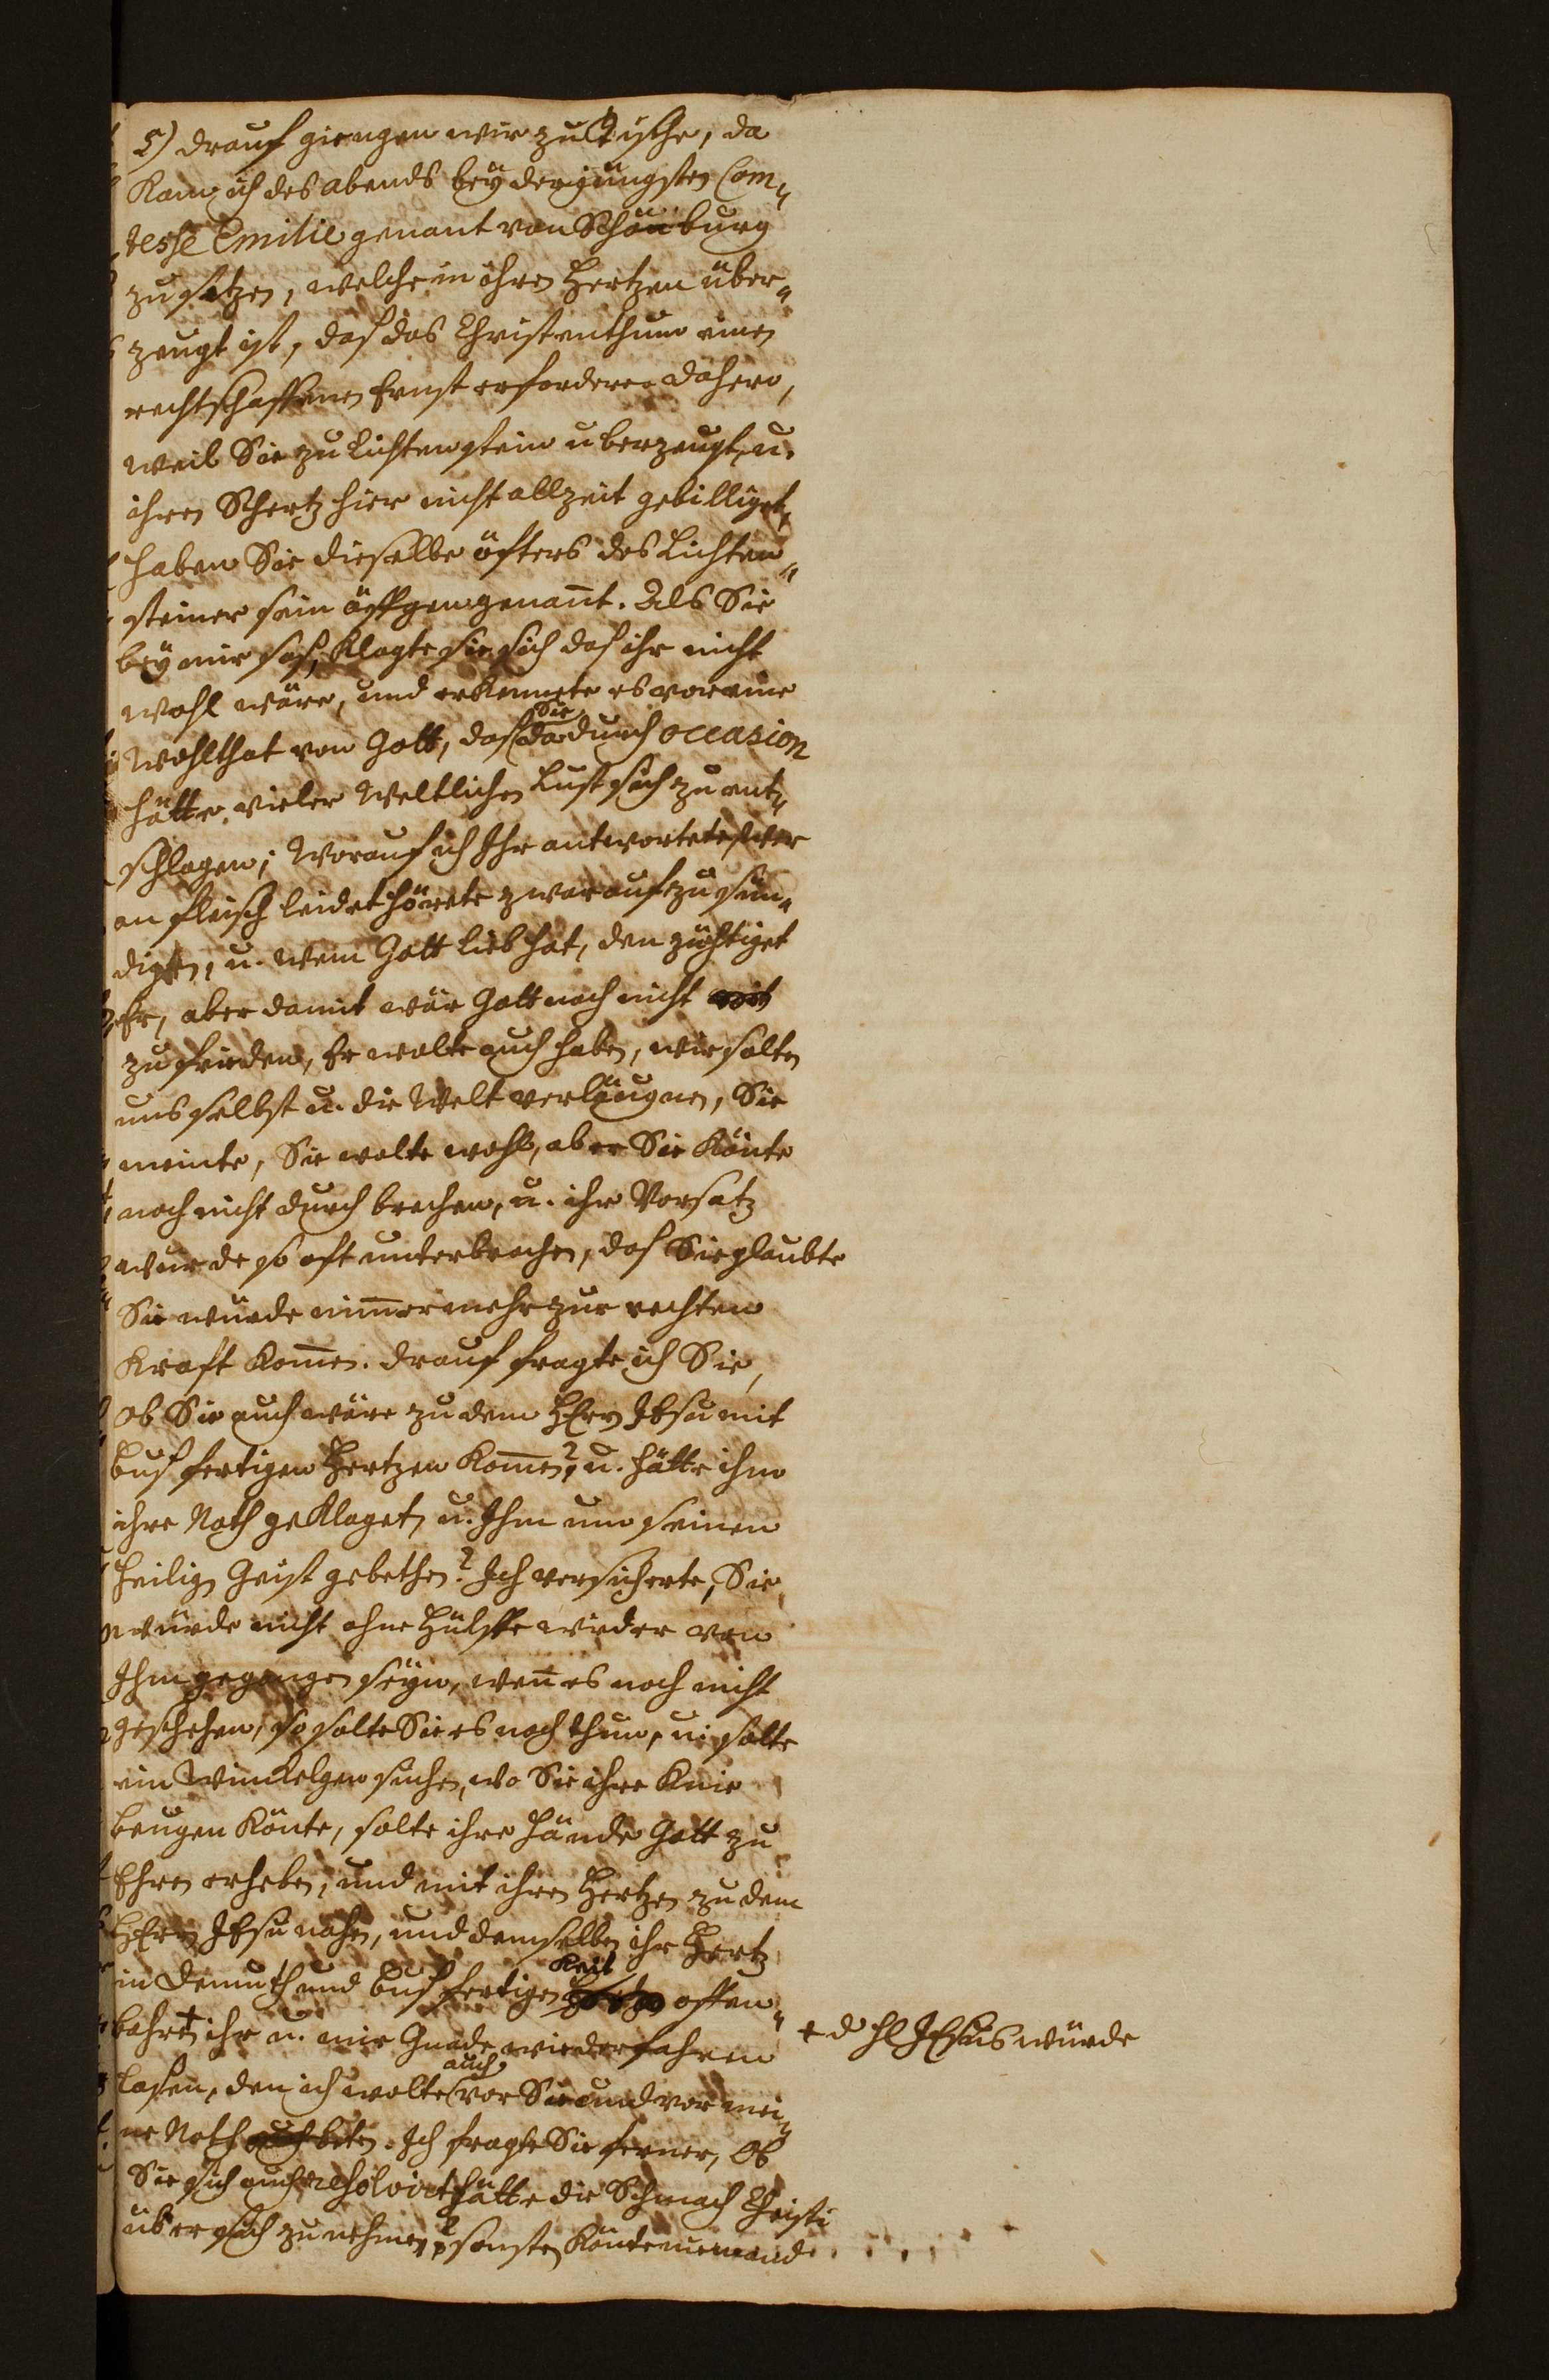 5) drauf giengen wir zu Tische, da
Kam ich des abends bey der jüngsten Com„
tesse Emilie genant von Schönburg
zu sitzen, welche in ihren Hertzen über„
zeugt ist, daß das Christenthum einen
rechtschaffenen Ernst erfordere. dahero,
weil Sie zu Lichtenstein uberzeugt, u.
ihren Schertz hier nicht allzeit gebilliget,
haben Sie dieselbe öfters des Lichten„
steiner sein äffgen genant. Als Sie
bey mir saß, Klagte sie sich daß ihr nicht
wohl wäre, und erkennete es vor eine
Wohlthat von Gott, daß Sie dadurch occasion
hätte, vieler Weltlichen Lust sich zu ent„
schlagen; Worauf ich Ihr antwortete, wer
an fleisch leidet hörete zwar auf zu sün„
digen, u. wem Gott lieb hat, den züchtiget
Er, aber damit wär Gott noch nicht
zu frieden, Er wolte auch haben, wir solten
uns selbst u. die Welt verläugnen, Sie
meinte, Sie wolte wohl, aber Sie Könte
noch nicht durch brechen, u. ihr Vorsatz
wurde so oft unterbrochen, daß Sie glaubte
Sie wurde nimermehr zur rechten
Kraft Komen. drauf fragte ich Sie,
ob Sie auch wäre zu dem HErn JEsu mit
bußfertigen Hertzen Komen?, u. hätte ihm
ihre Noth geKlaget, u. Ihm um seinen
heilign Geist gebethen? Ich versicherte, Sie
wurde nicht ohne Hülffe wieder von
Ihm gegangen seyn, wen es noch nicht
geschehen, so solte Sie es noch thun, u. solte
ein Winkelgen suchen, wo Sie ihre Knie
beugen Könte, solte ihre Hände Gott zu
Ehren erheben, und mit ihren Hertzen zu dem
HErn JEsu nahen, und demselben ihr Hertz
in Demuth und Bußfertigkeit offen„
bahren + ihr u. mir Gnade wiederfahren
+ d hl JEsus würde
laßen, den ich wolte auch vor Sie und vor mei„
ne Noth beten. Ich fragte Sie ferner, Ob
Sie sich auch resolvirt hätte die Schmach Christi
über sich zu nehmen?, sonsten Könte niemand